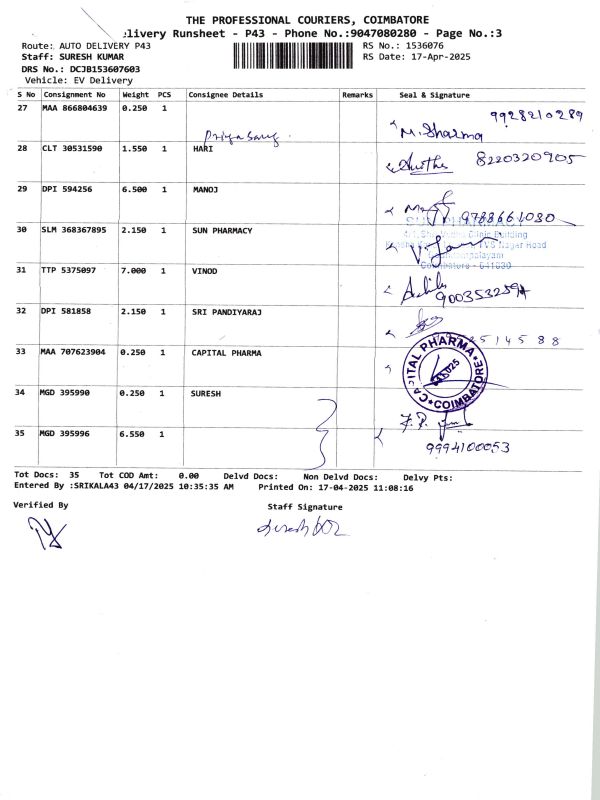 THE PROFESSIONAL COURIERS, COIMBATORE
livery Runsheet - P43 - Phone No.:9047080280 - Page No.:3
Route: AUTO DELIVERY P43
RS No.: 1536076
Staff: SURESH KUMAR
RS Date: 17-Apr-2025
DRS No.: DCJB153607603
Vehicle: EV Delivery
S No Consignment No Weight PCS Consignee Details Remarks Seal & Signature
27 MAA 866804639 0.250 1
9928210289
M. Sharma
28 CLT 30531590 1.550 1 HARI
8220320905
29 DPI 594256 6.500 1 MANOJ
9788661080
30 SLM 368367895 2.150 1 SUN PHARMACY
SUN PHARMACY
Clinic Building
TVS Nagar Road
Coimbatore - 641030
31 TTP 5375097 7.000 1 VINOD
32 DPI 581858 2.150 1 SRI PANDIYARAJ
33 MAA 707623904 0.250 1 CAPITAL PHARMA
CAPITAL PHARMA
COIMBATORE
34 MGD 395990 0.250 1 SURESH
35 MGD 395996 6.550 1
9994100053
Tot Docs: 35 Tot COD Amt: 0.00 Delvd Docs: Non Delvd Docs: Delvy Pts:
Entered By :SRIKALA43 04/17/2025 10:35:35 AM Printed On: 17-04-2025 11:08:16
Verified By
Staff Signature